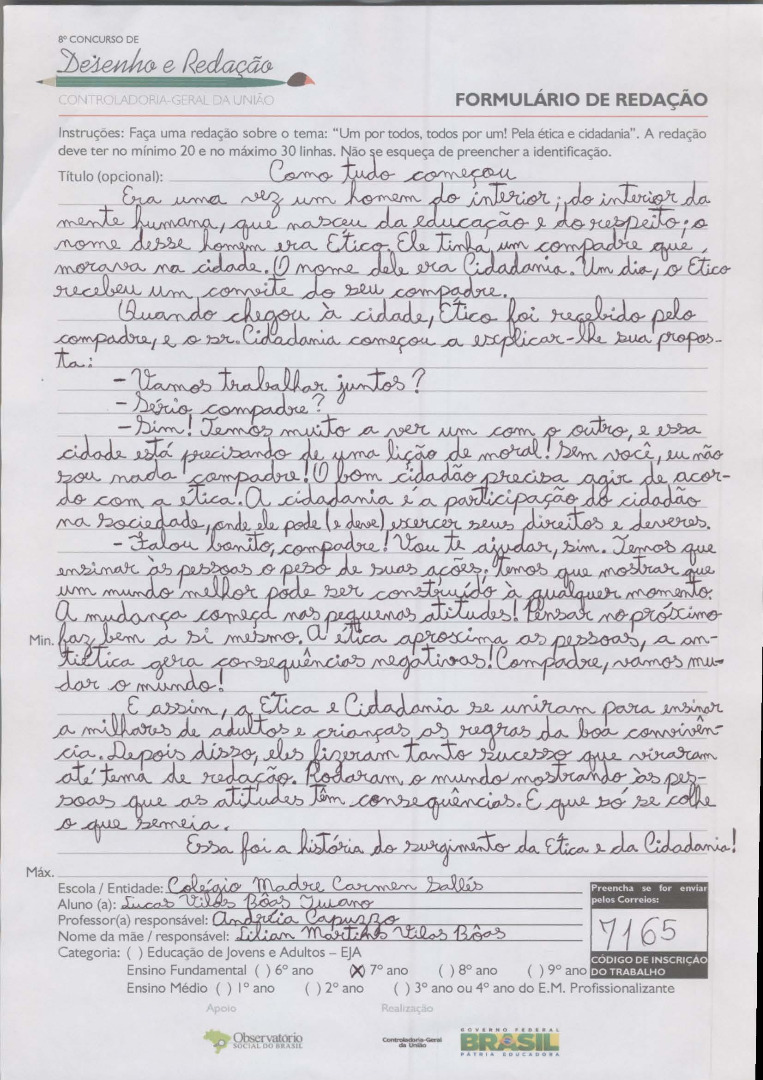 8º CONCURSO DE
Desenho e Redação
CONTROLADORIA-GERAL DA UNIÃO
FORMULÁRIO DE REDAÇÃO
Instruções: Faça uma redação sobre o tema: “Um por todos, todos por um! Pela ética e cidadania”. A redação
deve ter no mínimo 20 e no máximo 30 linhas. Não se esqueça de preencher a identificação.
Título (opcional): Como tudo começou
Era uma vez um homem do interior; do interior da
mente humana, que nasceu da educação e do respeito; o
nome desse homem era Ético. Ele tinha um compadre que
morava na cidade. O nome dele era Cidadania. Um dia, o Ético
recebeu um convite do seu compadre.
Quando chegou à cidade, Ético foi recebido pelo
compadre, e o sr. Cidadania começou a explicar-lhe sua propos-
ta:
- Vamos trabalhar juntos?
- Sério compadre?
- Sim! Temos muito a ver um com o outro, e essa
cidade está precisando de uma lição de moral! Sem você, eu não
sou nada compadre! O bom cidadão precisa agir de acor-
do com a ética! A cidadania é a participação do cidadão
na sociedade, onde ele pode (e deve) exercer seus direitos e deveres.
- Falou bonito, compadre! Vou te ajudar, sim. Temos que
ensinar às pessoas o peso de suas ações. Temos que mostrar que
um mundo melhor pode ser construído à qualquer momento.
A mudança começa nas pequenas atitudes! Pensar no próximo
Min. faz bem a si mesmo. A ética aproxima as pessoas, a an-
tiética gera consequências negativas! Compadre, vamos mu-
dar o mundo!
E assim, a Ética e Cidadania se uniram para ensinar
a milhares de adultos e crianças as regras da boa convivên-
cia. Depois disso, eles fizeram tanto sucesso que viraram
até tema de redação. Rodaram o mundo mostrando às pes-
soas que as atitudes têm consequências. E que só se colhe
o que semeia.
Essa foi a história do surgimento da Ética e da Cidadania!
Máx.
Escola / Entidade: Colégio Madre Carmen Sallés
Aluno (a): Lucas Vilas Bôas Juiano
Professor(a) responsável: Andréia Capuzzo
Nome da mãe / responsável: Lilian Martins Vilas Bôas
Categoria: ( ) Educação de Jovens e Adultos – EJA
Ensino Fundamental ( ) 6º ano (X) 7º ano ( ) 8º ano ( ) 9º ano
Ensino Médio ( ) 1º ano ( ) 2º ano ( ) 3º ano ou 4º ano do E.M. Profissionalizante
Preencha se for enviar
pelos Correios:
7165
CÓDIGO DE INSCRIÇÃO
DO TRABALHO
Apoio
Realização
Observatório
SOCIAL DO BRASIL
Controladoria-Geral
da União
GOVERNO FEDERAL
BRASIL
PÁTRIA EDUCADORA